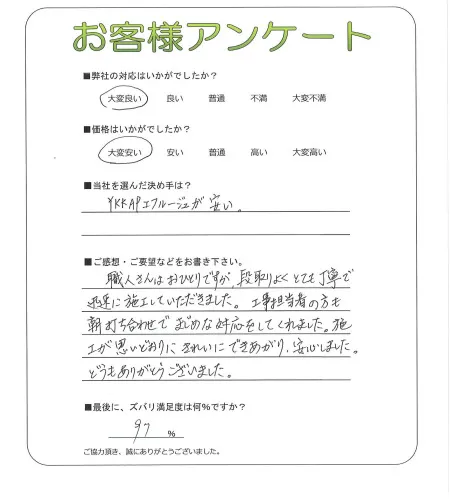 お客様アンケート
■弊社の対応はいかがでしたか?
大変良い 良い 普通 不満 大変不満
■価格はいかがでしたか?
大変安い 安い 普通 高い 大変高い
■当社を選んだ決め手は?
YKKAPエフルージュが安い。
■ご感想・ご要望などをお書き下さい。
職人さんはおひとりですが、段取りよくとても丁寧で
迅速に施工していただきました。工事担当者の方も
朝打ち合わせでまじめな対応をしてくれました。施
工が思いどおりにきれいにできあがり、安心しました。
どうもありがとうございました。
■最後に、ズバリ満足度は何%ですか?
97 %
ご協力頂き、誠にありがとうございました。